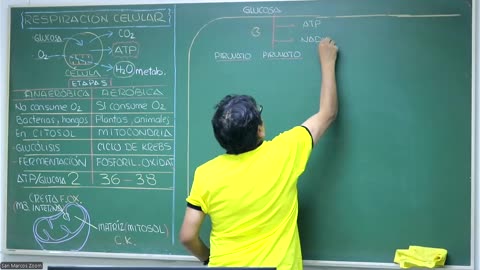 RESPIRACIÓN CELULAR
GLUCOSA
CO₂
O₂
ATP
H₂O metab.
CÉLULA
ETAPAS
ANAERÓBICA
AERÓBICA
No consume O₂
SÍ consume O₂
Bacterias, hongos
Plantas, animales
En CITOSOL
MITOCONDRIA
GLUCÓLISIS
CICLO DE KREBS
FERMENTACIÓN
FOSFORIL. OXIDAT
ATP/GLUCOSA 2
36 - 38
CRESTA F.OX.
MATRIZ (MITOSOL)
C.K.
GLUCOSA
ATP
NAD
PIRUVATO PIRUVATO
San Marcos Zoom